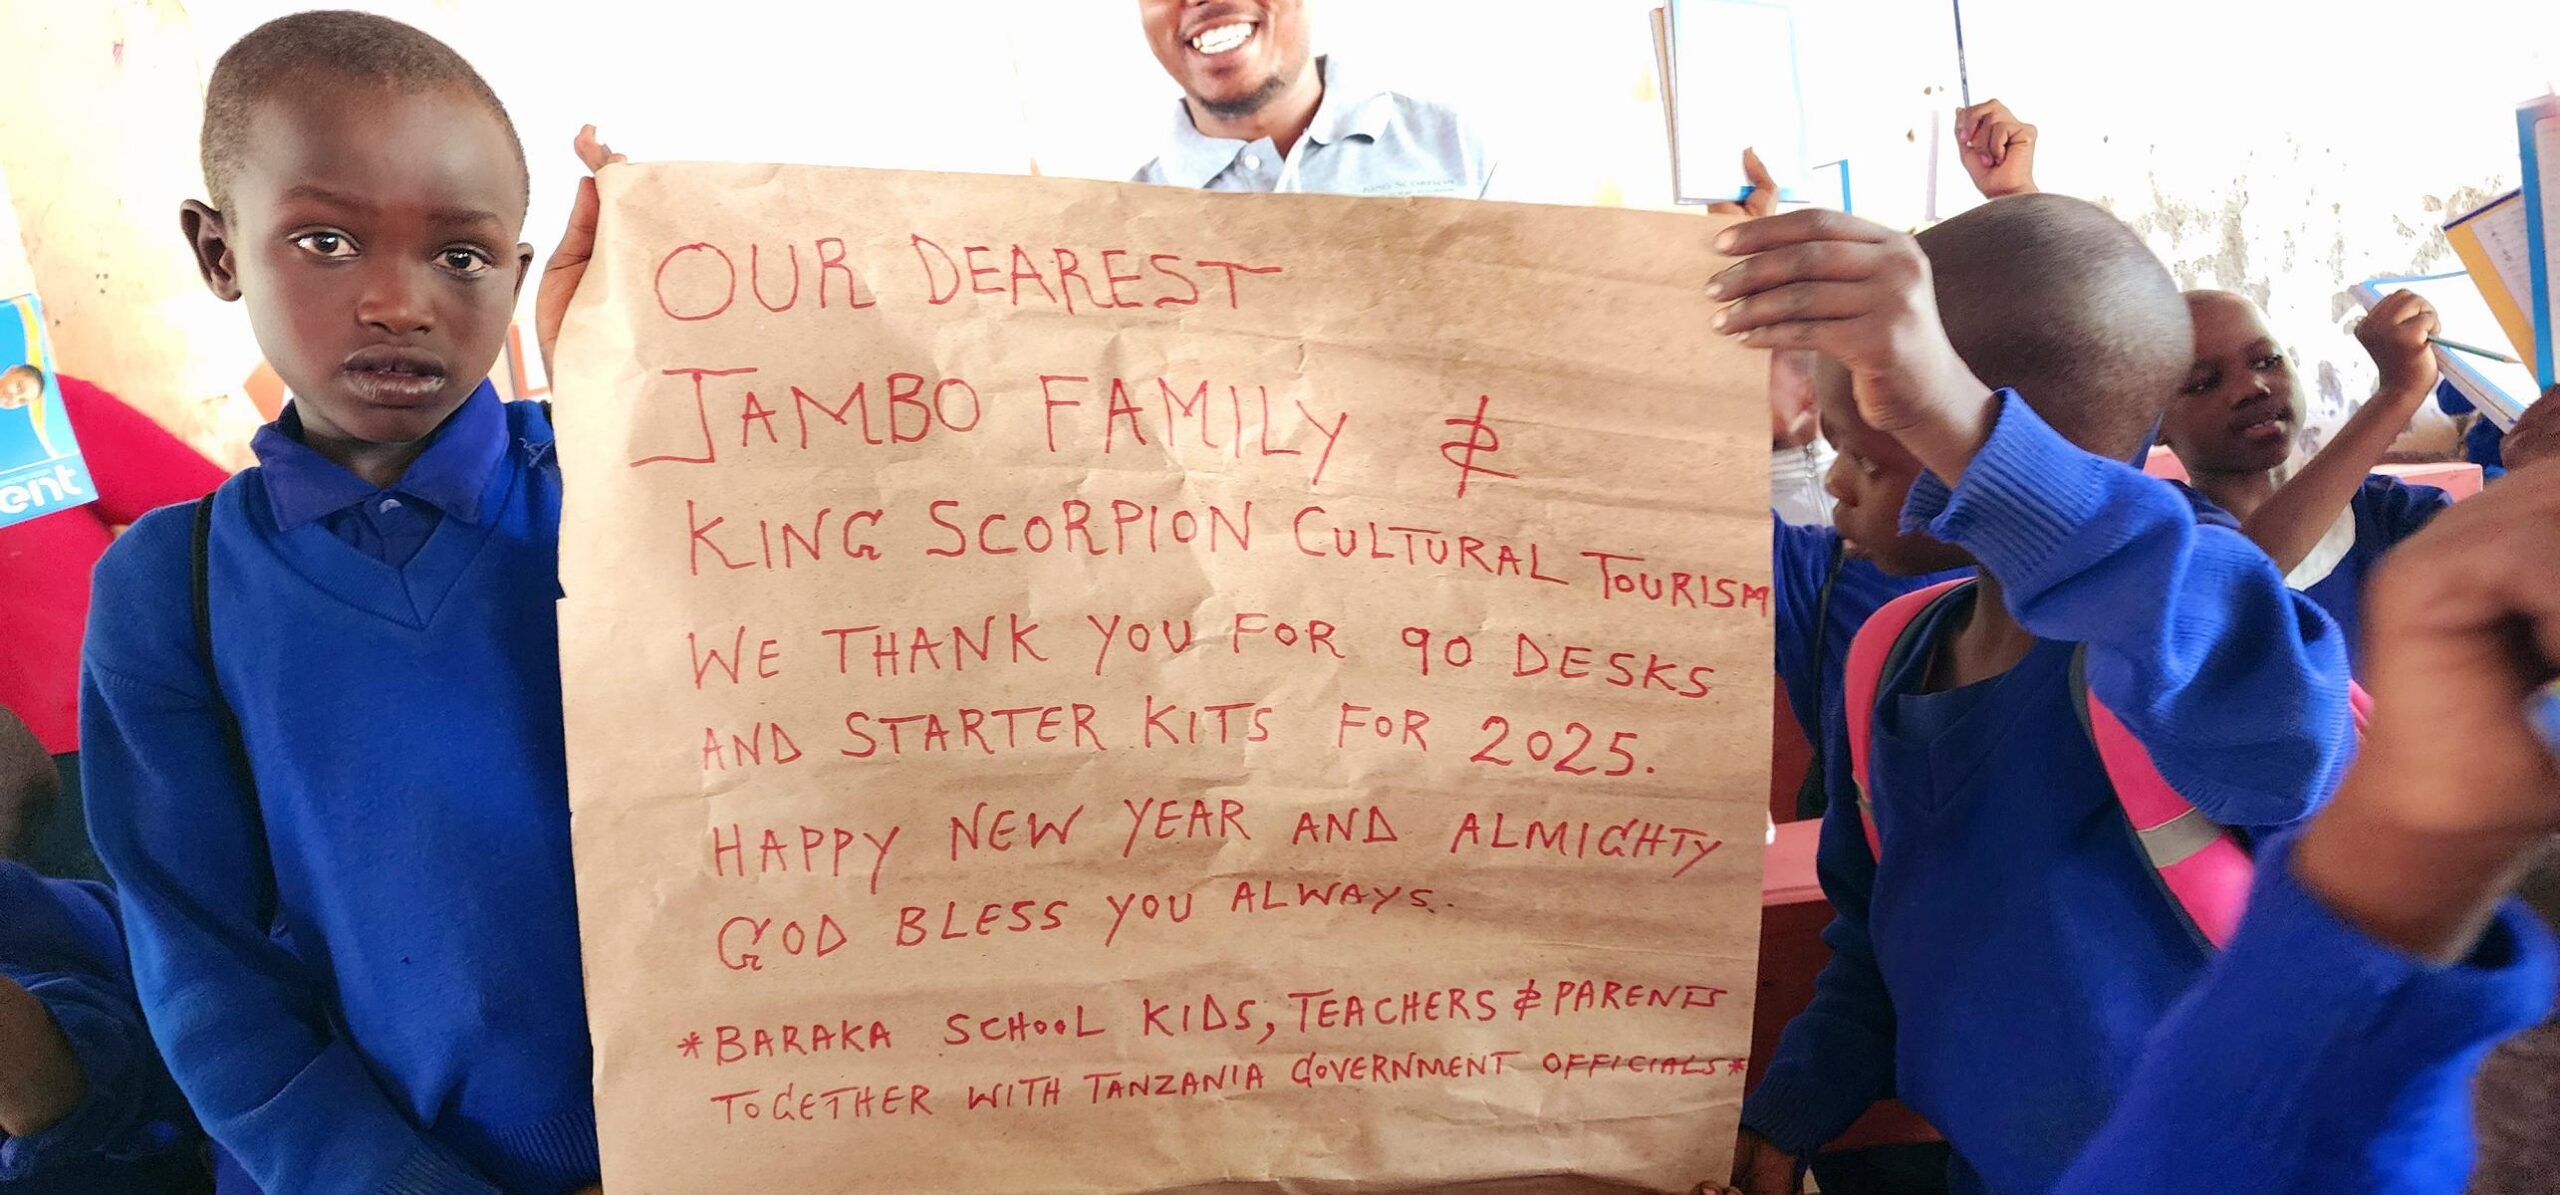 OUR DEAREST
JAMBO FAMILY &
KING SCORPION CULTURAL TOURISM
WE THANK YOU FOR 90 DESKS
AND STARTER KITS FOR 2025.
HAPPY NEW YEAR AND ALMIGHTY
GOD BLESS YOU ALWAYS.
*BARAKA SCHOOL KIDS, TEACHERS & PARENTS
TOGETHER WITH TANZANIA GOVERNMENT OFFICIALS*
KING SCORPION
ent